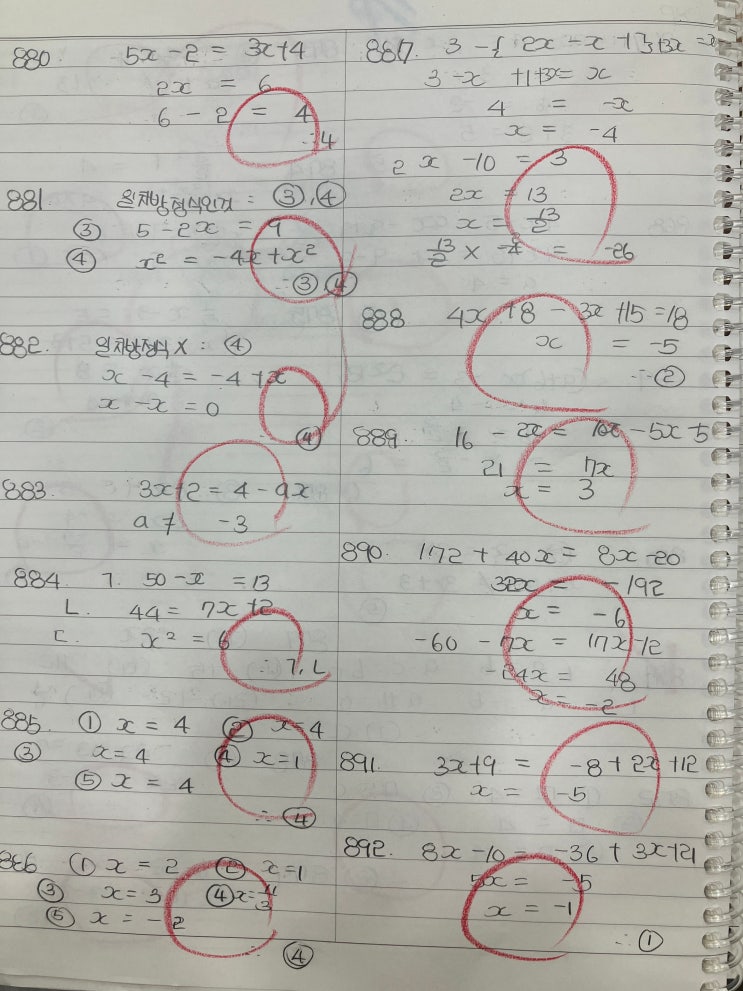 880. 5x-2 = 3x+4
2x = 6
6 - 2 = 4
∴ 4
881. 일차방정식인것 : ③, ④
③ 5-2x = 9
④ x² = -4x+x²
∴ ③ ④
882. 일차방정식 X : ④
x -4 = -4 +x
x -x = 0
④
883. 3x+2 = 4 - ax
a ≠ -3
884. ㄱ. 50-x = 13
ㄴ. 44 = 7x+2
ㄷ. x² = 6
∴ ㄱ, ㄴ
885. ① x = 4 ② x=4
③ x=4 ④ x=1
⑤ x = 4
∴ ④
886 ① x = 2 ② x=1
③ x=3 ④
⑤ x = -2
④
887. 3 -{ 2x - x +
3 -x +1+3x= x
4 = -x
x = -4
2x -10 = 3
2x = 13
x = 13/2
13/2 × -4 = -26
888 4x +8 - 3x +15 =18
x = -5
∴ ②
889. 16 - 2x = 10x -5x-5
21 = 7x
x = 3
890. 172 + 40x = 8x-20
32x = -192
x = -6
-60 - 7x = 17x-12
-24x = 48
x = -2
891. 3x+9 = -8+2x+12
x = -5
892. 8x-10 = -36 + 3x+21
5x = -5
x = -1
∴ ①